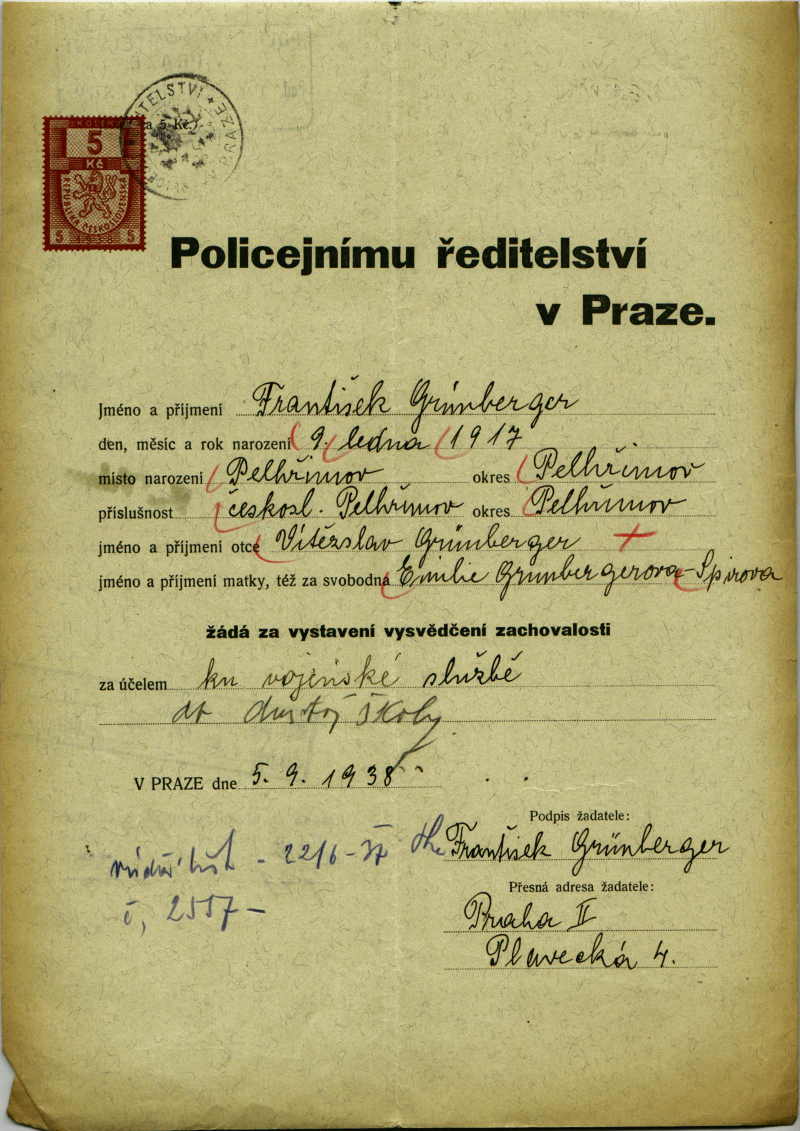 5
Kč
REPUBLIKA ČESKOSLOVENSKÁ
5 5
a 5 Kč.)
Policejnímu ředitelství
v Praze.
Jméno a příjmení František Grünberger
den, měsíc a rok narození 9. ledna 1917
místo narození Pelhřimov okres Pelhřimov
příslušnost českosl. Pelhřimov okres Pelhřimov
jméno a příjmení otce Vítězslav Grünberger +
jméno a příjmení matky, též za svobodna Emilie Grünbergerova - Spirova
žádá za vystavení vysvědčení zachovalosti
za účelem ku vojenské službě
do důstoj školy
V PRAZE dne 5. 9. 1938
Podpis žadatele:
František Grünberger
- 22/6 - 37
č, 2557 -
Přesná adresa žadatele:
Praha II
Plavecká 4.